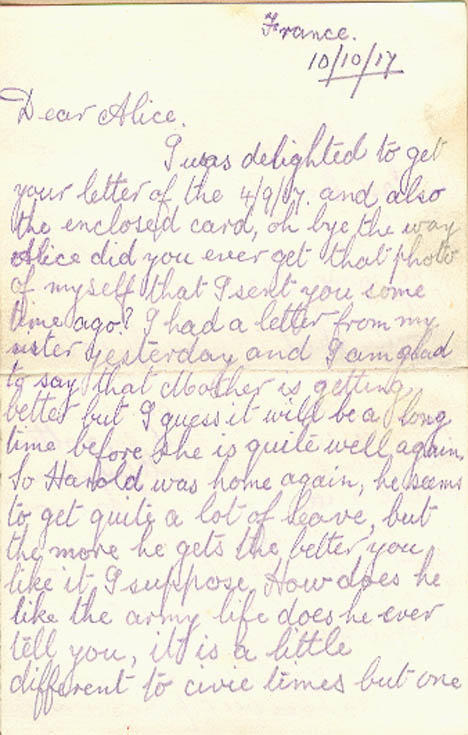 France.
10/10/17
Dear Alice.
I was delighted to get
your letter of the 4/9/17. and also
the enclosed card, oh bye the way
Alice did you ever get that photo
of myself that I sent you some
time ago? I had a letter from my
sister yesterday and I am glad
to say that Mother is getting
better but I guess it will be a long
time before she is quite well again.
So Harold was home again, he seems
to get quite a lot of leave, but
the more he gets the better you
like it I suppose. How does he
like the army life does he ever
tell you, it is a little
different to civic times but one